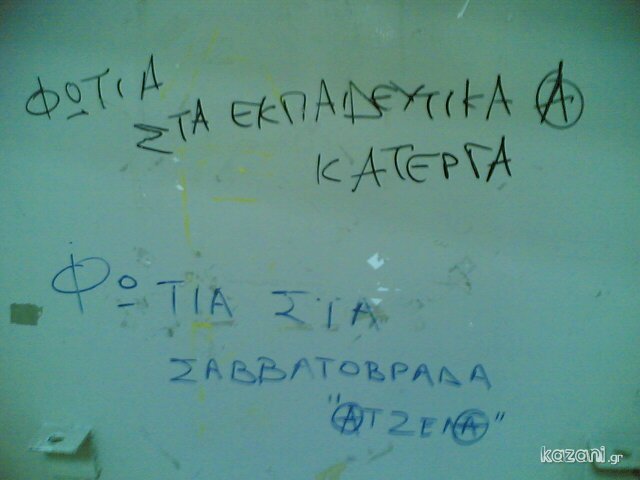 ΦΩΤΙΑ
ΣΤΑ ΕΚΠΑΙΔΕΥΤΙΚΑ Ⓐ
ΚΑΤΕΡΓΑ
ΦΩΤΙΑ ΣΤΑ
ΣΑΒΒΑΤΟΒΡΑΔΑ
"ⒶΤΖΕΝⒶ"
kazani.gr